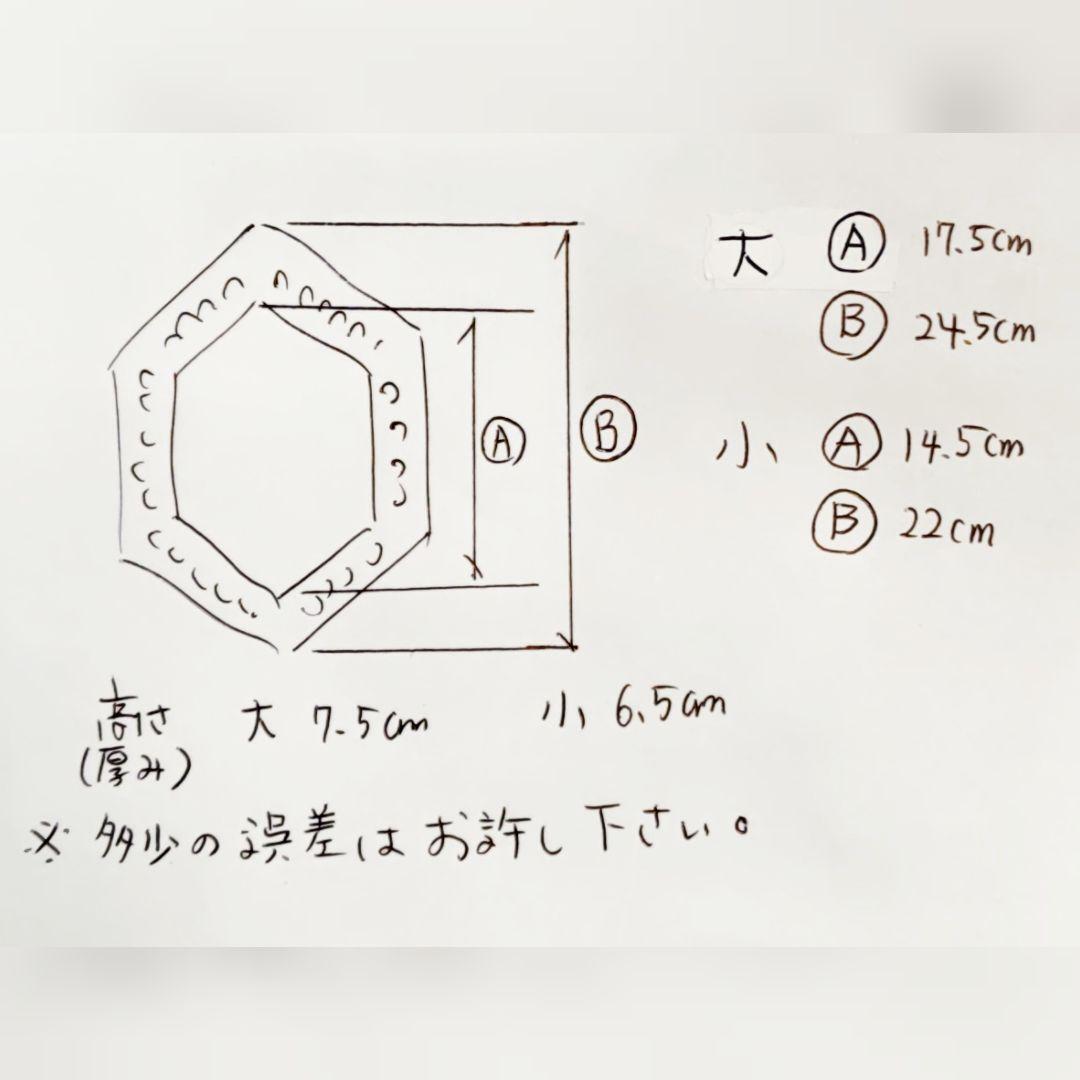 大 Ⓐ 17.5cm
Ⓑ 24.5cm
小 Ⓐ 14.5cm
Ⓑ 22cm
Ⓐ
Ⓑ
高さ 大 7.5cm 小 6.5cm
(厚み)
※ 多少の誤差はお許し下さい。